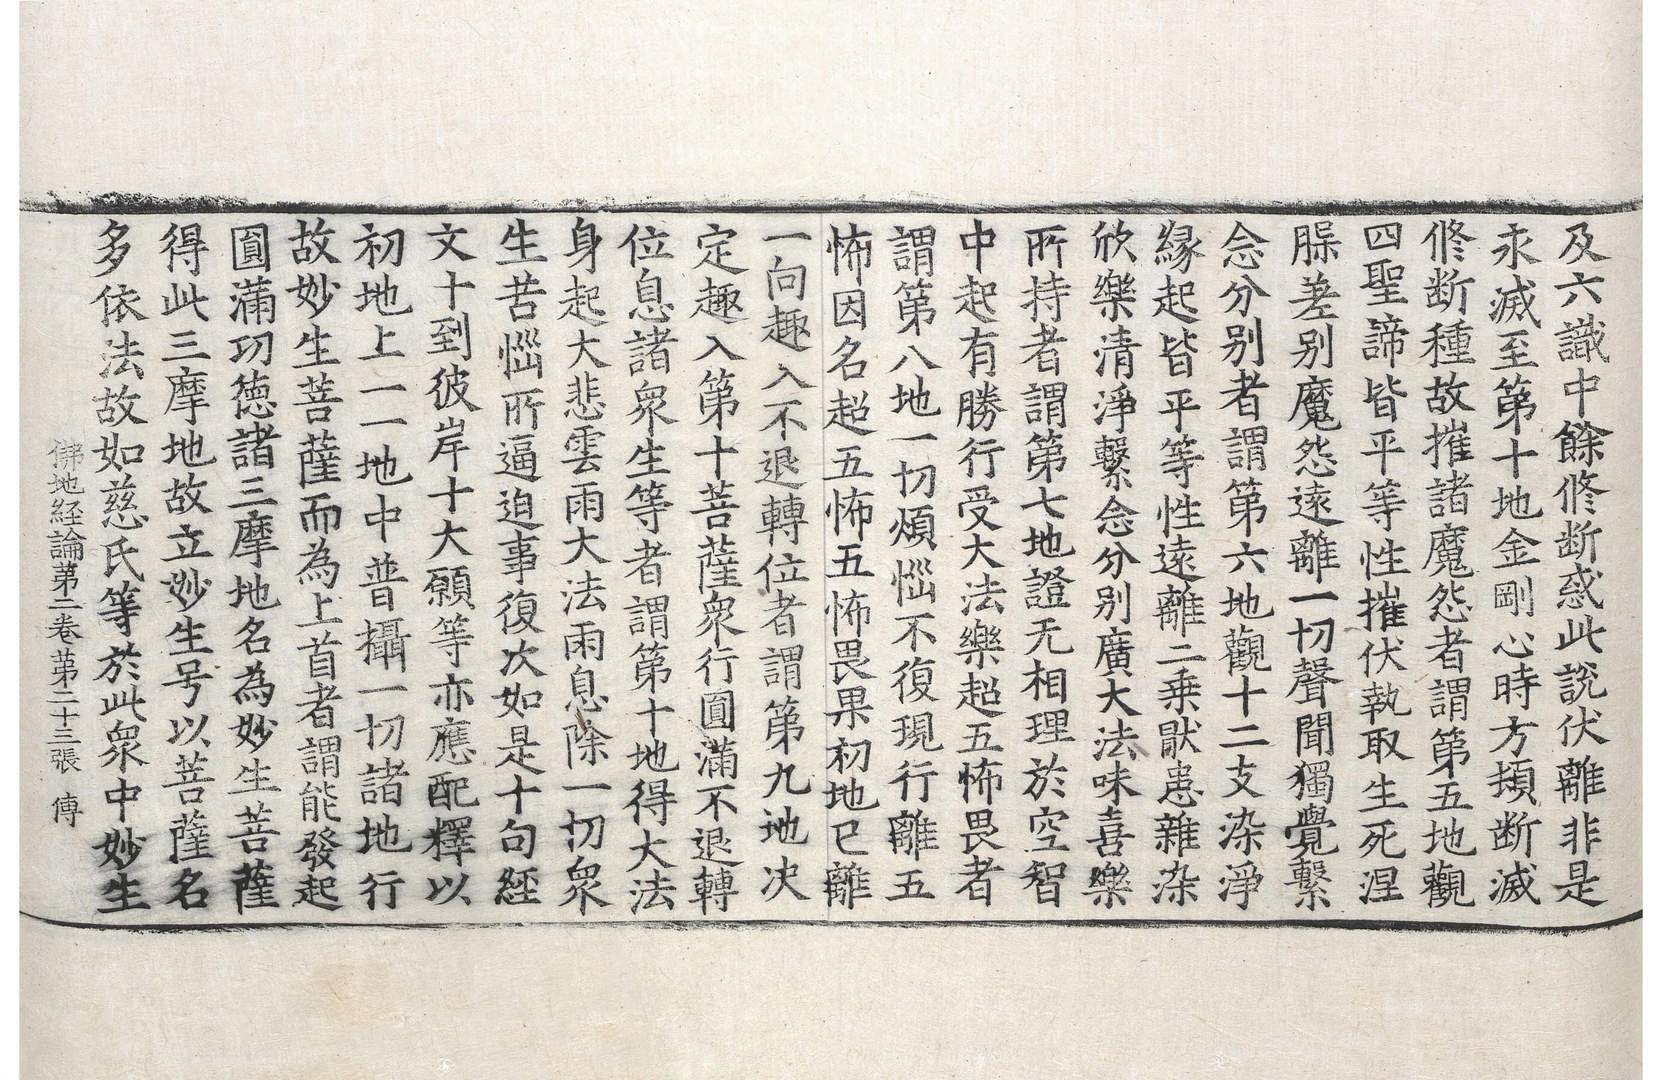 及六識中餘俢断惑此說伏離非是
永滅至第十地金剛心時方頓断滅
俢断種故摧諸魔怨者謂第五地觀
四聖諦皆平等性摧伏執取生死涅
槃差別魔怨遠離一切聲聞獨覺繫
念分别者謂第六地觀十二支染淨
緣起皆平等性遠離二乗猒患雜染
欣樂清淨繫念分别廣大法味喜樂
所持者謂第七地證无相理於空智
中起有勝行受大法樂超五怖畏者
謂第八地一切煩惱不復現行離五
怖因名超五怖五怖畏果初地已離
一向趣入不退轉位者謂第九地决
定趣入第十菩薩衆行圓滿不退轉
位息諸衆生等者謂第十地得大法
身起大悲雲雨大法雨息除一切衆
生苦惱所逼迫事復次如是十句經
文十到彼岸十大願等亦應配釋以
初地上一一地中普攝一切諸地行
故妙生菩薩而為上首者謂能發起
圓滿功德諸三摩地名為妙生菩薩
得此三摩地故立妙生号以菩薩名
多依法故如慈氏等於此衆中妙生
佛地経論第二卷 第二十三張 傳